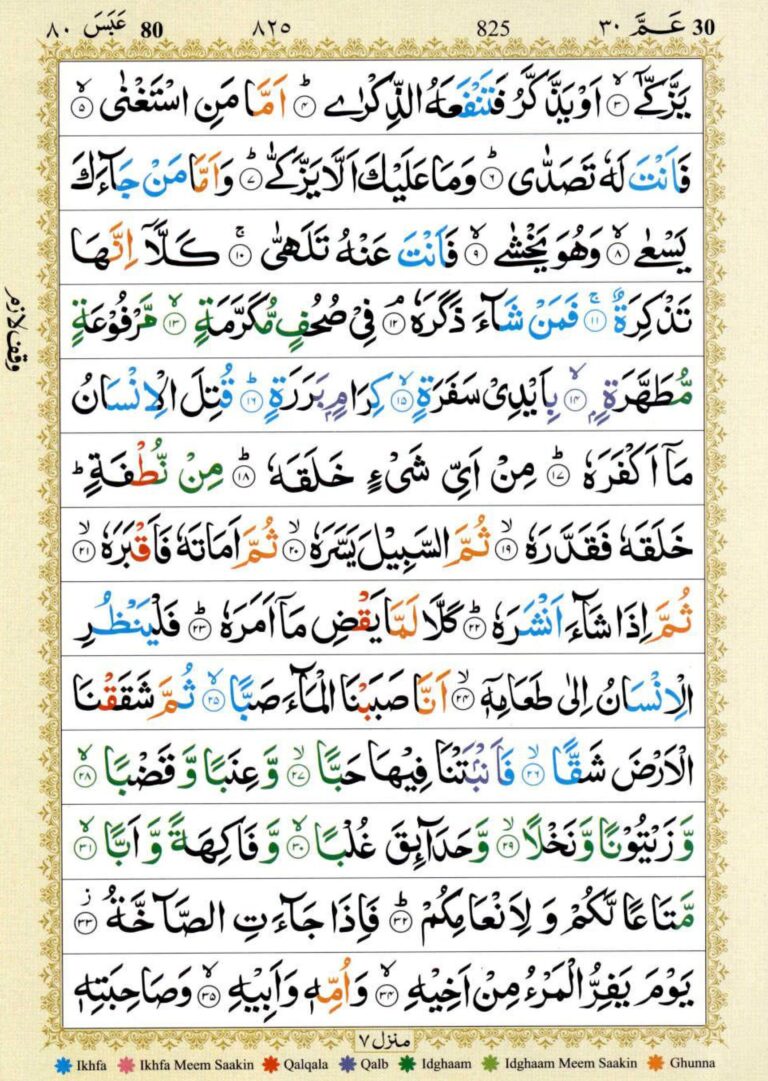 30 عَمَّ ٣٠ 825 ٨٢٥ 80 عَبَسَ ٨٠
يَزَّكّٰىۤ ۙ‏ ٣ اَوۡ يَذَّكَّرُ فَتَنۡفَعَهُ الذِّكۡرٰى ؕ‏ ٤ اَمَّا مَنِ اسۡتَغۡنٰى ۙ‏ ٥
فَاَنۡتَ لَهٗ تَصَدّٰى ؕ‏ ٦ وَمَا عَلَيۡكَ اَلَّا يَزَّكّٰى ؕ‏ ٧ وَاَمَّا مَنۡ جَآءَكَ
يَسۡعٰى ۙ‏ ٨ وَهُوَ يَخۡشٰى ۙ‏ ٩ فَاَنۡتَ عَنۡهُ تَلَهّٰى‌ ۚ‏ ١٠ كَلَّاۤ اِنَّهَا
تَذۡكِرَةٌ ۚ‏ ١١ فَمَنۡ شَآءَ ذَكَرَهٗ‌ ۘ‏ ١٢ فِىۡ صُحُفٍ مُّكَرَّمَةٍ ۙ‏ ١٣ مَّرۡفُوۡعَةٍ
مُّطَهَّرَةٍۢ ۙ‏ ١٤ بِاَيۡدِىۡ سَفَرَةٍ ۙ‏ ١٥ كِرَامٍۢ بَرَرَةٍ ؕ‏ ١٦ قُتِلَ الۡاِنۡسَانُ
مَاۤ اَكۡفَرَهٗ ؕ‏ ١٧ مِنۡ اَىِّ شَىۡءٍ خَلَقَهٗ ؕ‏ ١٨ مِنۡ نُّطۡفَةٍ ؕ
خَلَقَهٗ فَقَدَّرَهٗ ۙ‏ ١٩ ثُمَّ السَّبِيۡلَ يَسَّرَهٗ ۙ‏ ٢٠ ثُمَّ اَمَاتَهٗ فَاَقۡبَرَهٗ ۙ‏ ٢١
ثُمَّ اِذَا شَآءَ اَنۡشَرَهٗ ؕ‏ ٢٢ كَلَّا لَمَّا يَقۡضِ مَاۤ اَمَرَهٗ ؕ‏ ٢٣ فَلۡيَنۡظُرِ
الۡاِنۡسَانُ اِلٰى طَعَامِهٖۤ ۙ‏ ٢٤ اَنَّا صَبَبۡنَا الۡمَآءَ صَبًّا ۙ‏ ٢٥ ثُمَّ شَقَقۡنَا
الۡاَرۡضَ شَقًّا ۙ‏ ٢٦ فَاَنۡۢبَتۡنَا فِيۡهَا حَبًّا ۙ‏ ٢٧ وَّعِنَبًا وَّقَضۡبًا ۙ‏ ٢٨
وَّزَيۡتُوۡنًا وَّنَخۡلًا ۙ‏ ٢٩ وَّحَدَآئِقَ غُلۡبًا ۙ‏ ٣٠ وَّفَاكِهَةً وَّاَبًّا ۙ‏ ٣١
مَّتَاعًا لَّكُمۡ وَلِاَنۡعَامِكُمۡ ؕ‏ ٣٢ فَاِذَا جَآءَتِ الصَّآخَّةُ ۫‏ ٣٣
يَوۡمَ يَفِرُّ الۡمَرۡءُ مِنۡ اَخِيۡهِ ۙ‏ ٣٤ وَاُمِّهٖ وَاَبِيۡهِ ۙ‏ ٣٥ وَصَاحِبَتِهٖ
وقف لازم
منزل ٧
Ikhfa Ikhfa Meem Saakin Qalqala Qalb Idghaam Idghaam Meem Saakin Ghunna